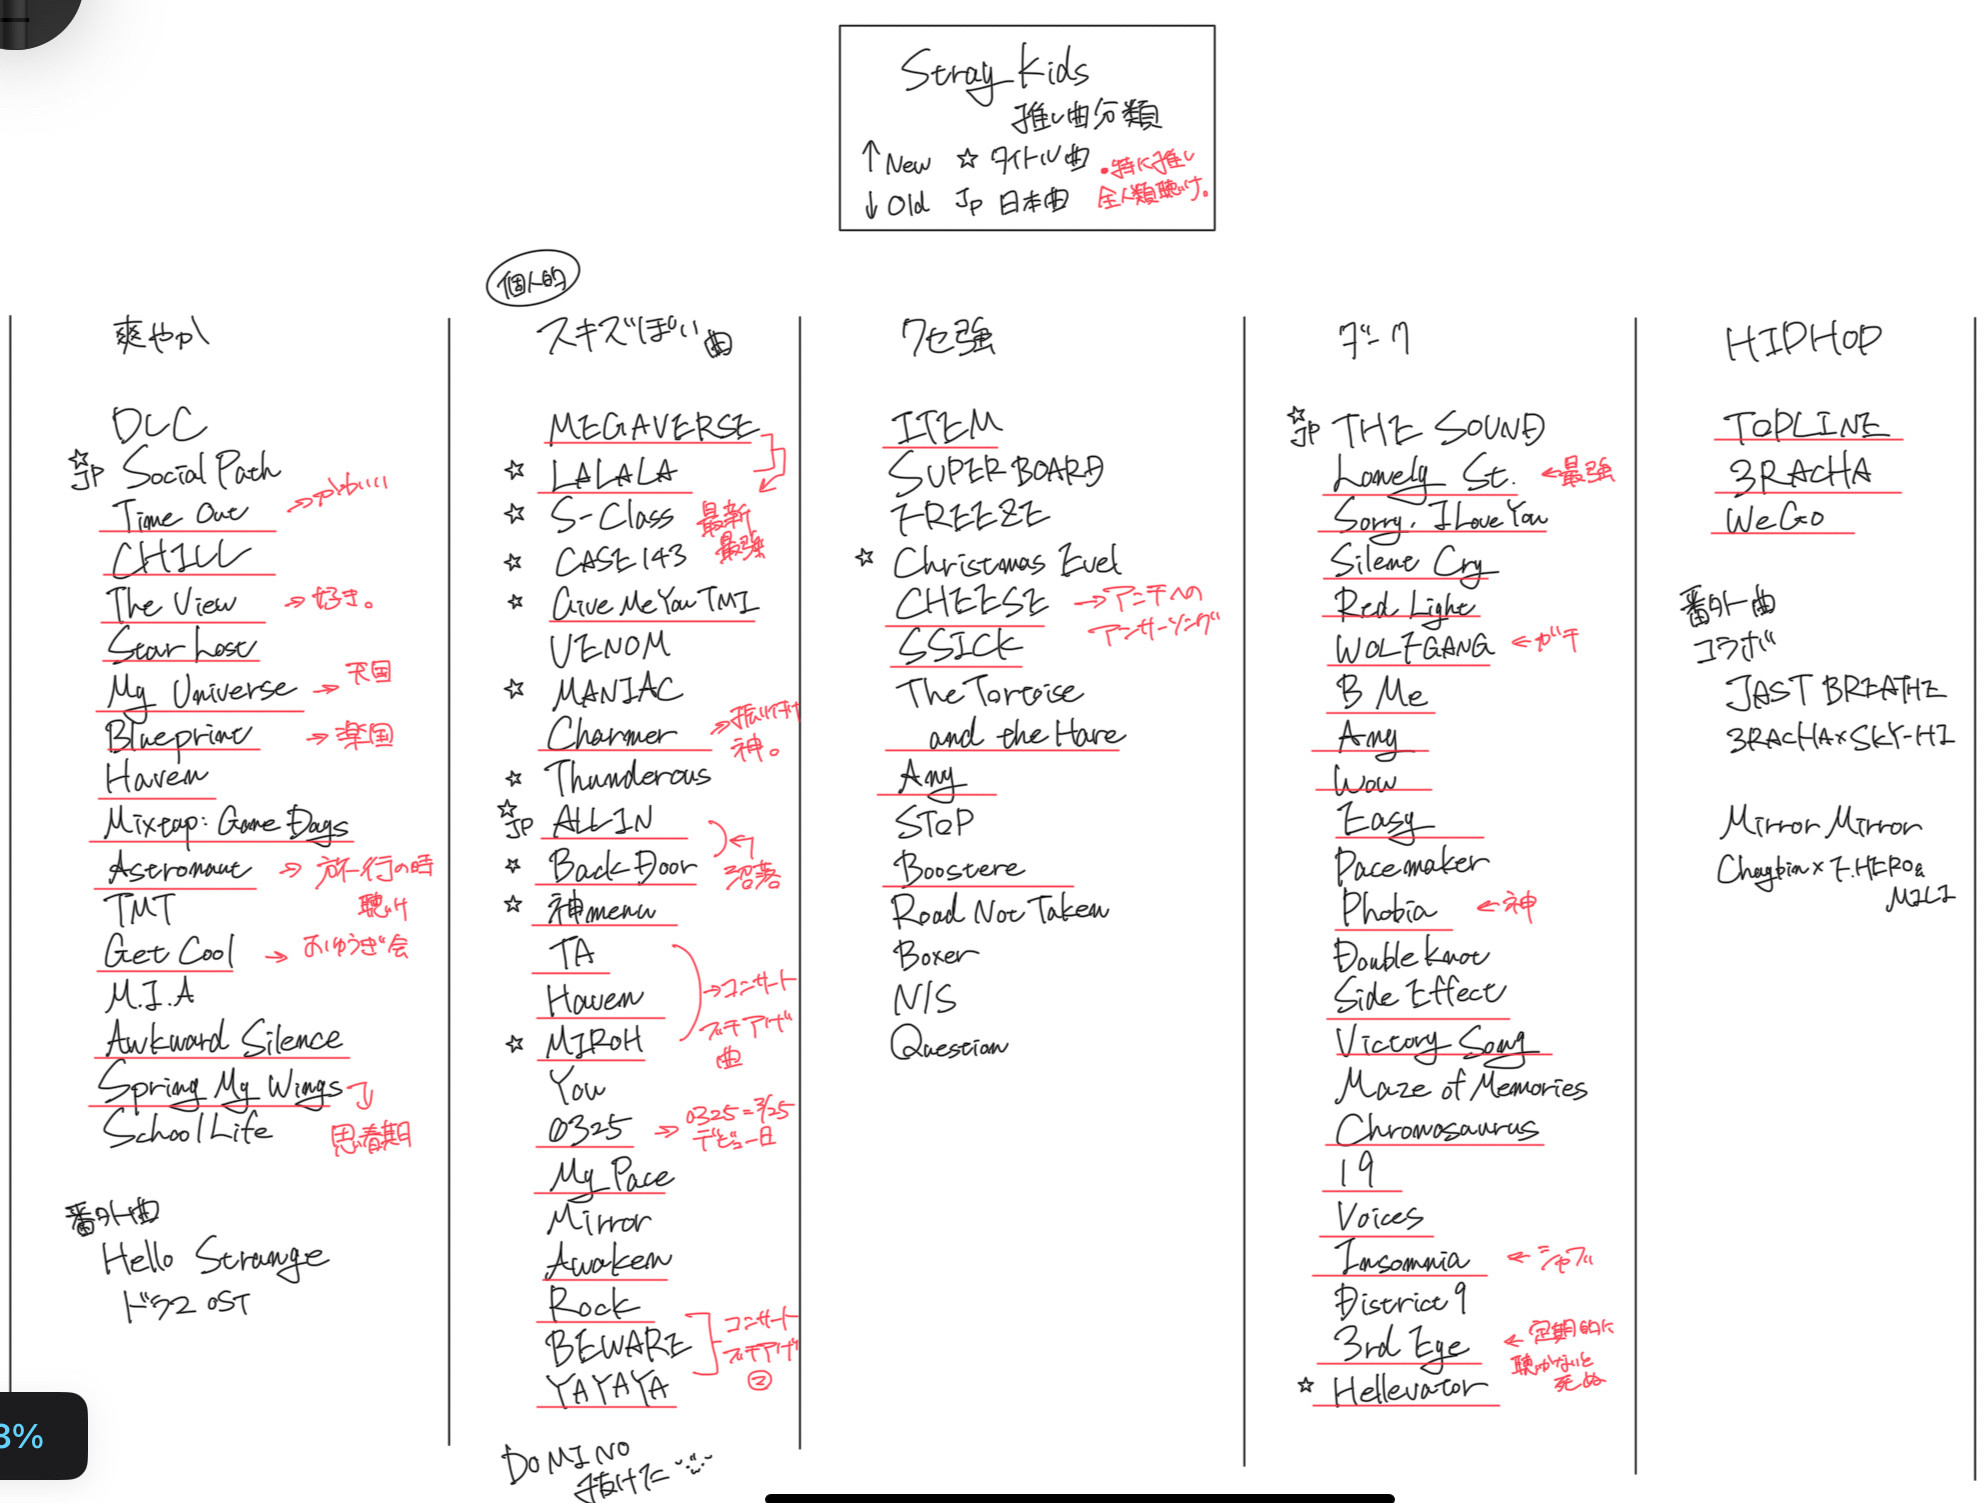 Stray Kids
推し曲分類
↑New ☆ タイトル曲 ・特に推し
↓Old JP 日本曲 全人類聴け。
爽やか
DLC
☆JP Social Path
Time Out → かわいい
CHILL
The View → 好き。
Star Lost
My Universe → 天国
Blueprint → 楽園
Haven
Mixtap: Game Days
Astronaut → 旅行の時
聴け
TMT
Get Cool → おゆうぎ会
M.I.A
Awkward Silence
Spring My Wings
School Life 思春期
番外曲
Hello Strange
ドラマ OST
個人的
スキズぽい曲
MEGAVERSE
☆ LALALA
☆ S-Class 最新
最強
☆ CASE 143
☆ Give Me You TMI
VENOM
☆ MANIAC
Charmer → 振り付け
神。
☆ Thunderous
☆JP ALL IN
☆ Back Door ← 沼落
☆ 神menu
TA
Haven → コンサート
ブチアゲ
曲
☆ MIROH
You
0325 → 0325=3/25
デビュー日
My Pace
Mirror
Awaken
Rock
BEWARE
YAYAYA
コンサート
ブチアゲ
②
DOMINO
抜けた
クセ強
ITEM
SUPER BOARD
FREEZE
☆ Christmas Evel
CHEESE → アンチへの
アンサーソング
SSICK
The Tortoise
and the Hare
Any
STOP
Boostere
Road Not Taken
Boxer
N/S
Question
ダーク
☆JP THE SOUND
Lonely St. ← 最強
Sorry, I Love You
Silent Cry
Red Light
WOLFGANG ← ガチ
B Me
Any
Wow
Easy
Pacemaker
Phobia ← 神
Double Knot
Side Effect
Victory Song
Maze of Memories
Chronosaurus
19
Voices
Insomnia ← シャブ
District 9
3rd Eye ← 定期的に
聴かないと
死ぬ
☆ Hellevator
HIPHOP
TOPLINE
3RACHA
We Go
番外曲
コラボ
JAST BREATHE
3RACHA×SKY-HI
Mirror Mirror
Changbin × F.HERO&
MILI
3%